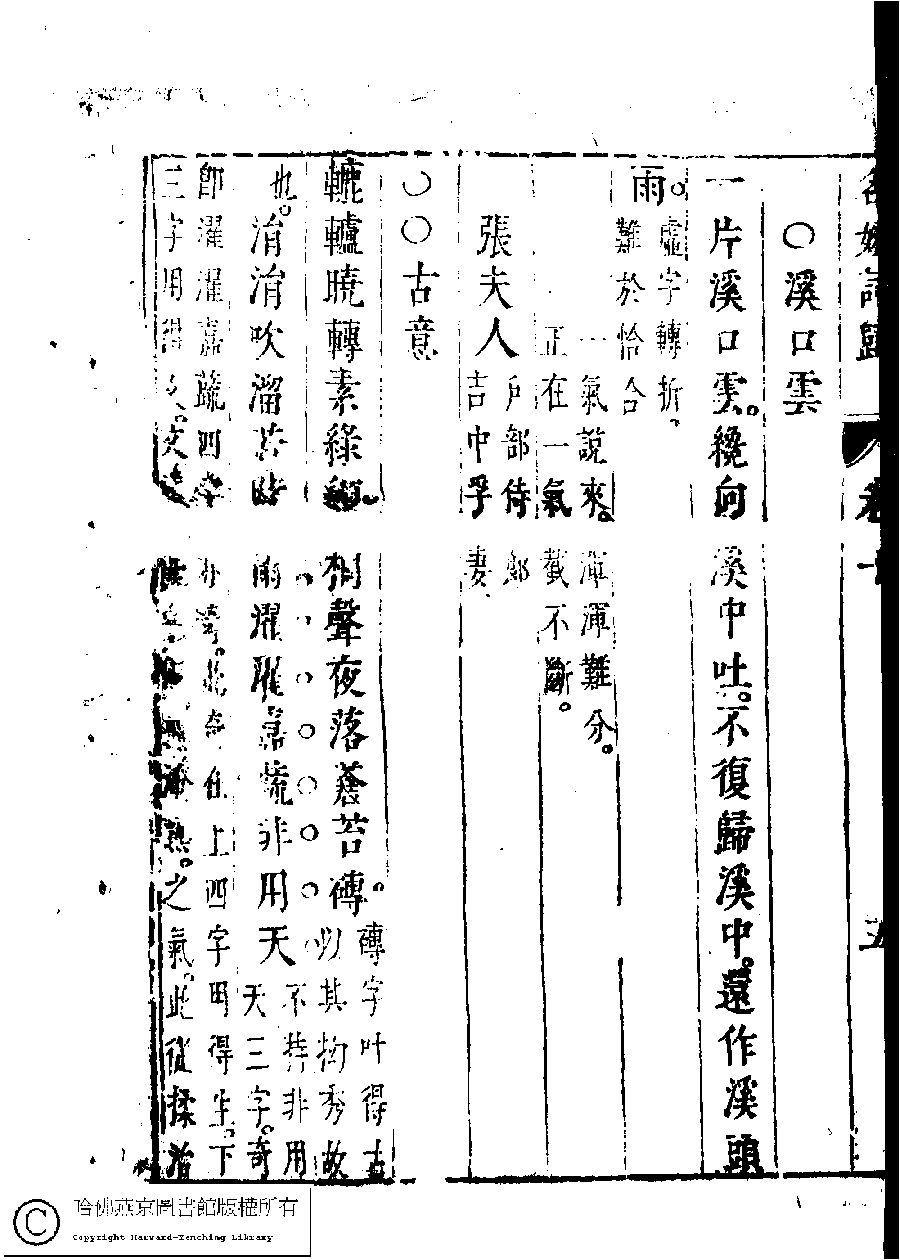 名媛詩歸 卷十 五
○溪口雲
一片溪口雲。纔向溪中吐。不復歸溪中。還作溪頭
雨。虛字轉折。難於恰合
一氣說來。渾渾難分。正在一氣截不斷。
張夫人 戶部侍郎吉中孚妻
○○古意
轆轤曉轉素絲綆。桐聲夜落蒼苔磚。磚字叶得古以其拗秀故
也。涓涓吹溜若時雨濯濯嘉蔬非用天 不特非用天三字。奇
卽濯濯嘉蔬四字亦奇。此奇在上四字用得生。下
三字用得 之氣。此從揉治
哈佛燕京圖書館版權所有
Copyright Harvard-Yenching Library